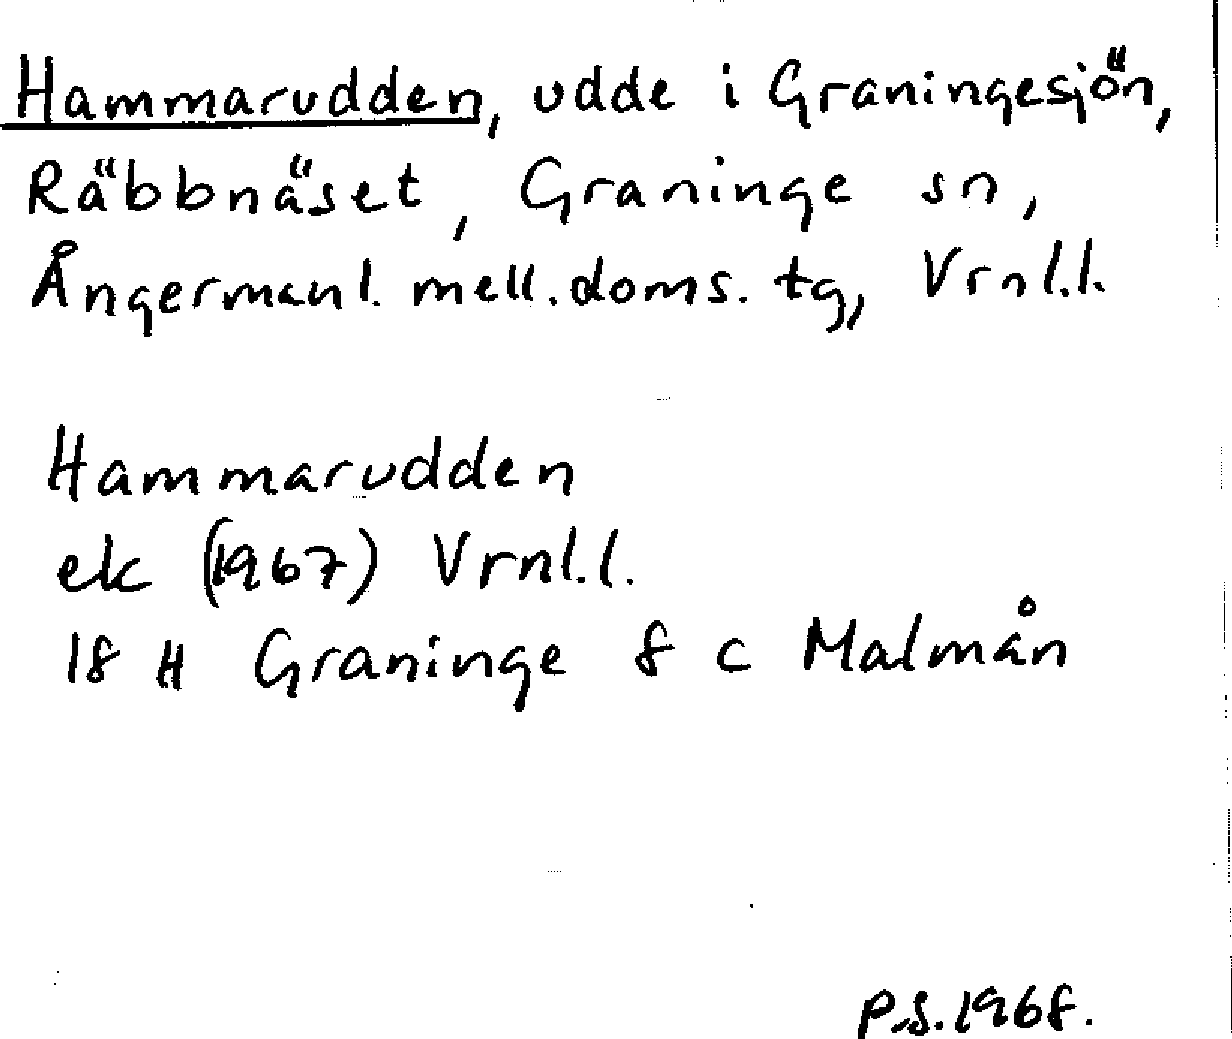 Hammarudden, udde i Graningesjön,
Räbbnäset, Graninge sn,
Ångermanl. mell. doms. tg, Vrnl.l.
Hammarudden
ek (1967) Vrnl.l.
18 H Graninge 8 c Malmån
P.S. 1968.